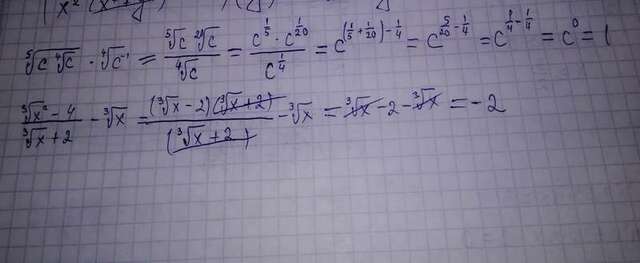 ⁵√(c ⁴√c) · ⁴√c⁻¹ = (⁵√c ²⁰√c)/(⁴√c) = (c^(1/5) · c^(1/20))/(c^(1/4)) = c^((1/5 + 1/20) - 1/4) = c^(5/20 - 1/4) = c^(1/4 - 1/4) = c⁰ = 1
(³√x² - 4)/(³√x + 2) - ³√x = ((³√x - 2)(³√x + 2))/((³√x + 2)) - ³√x = ³√x - 2 - ³√x = -2